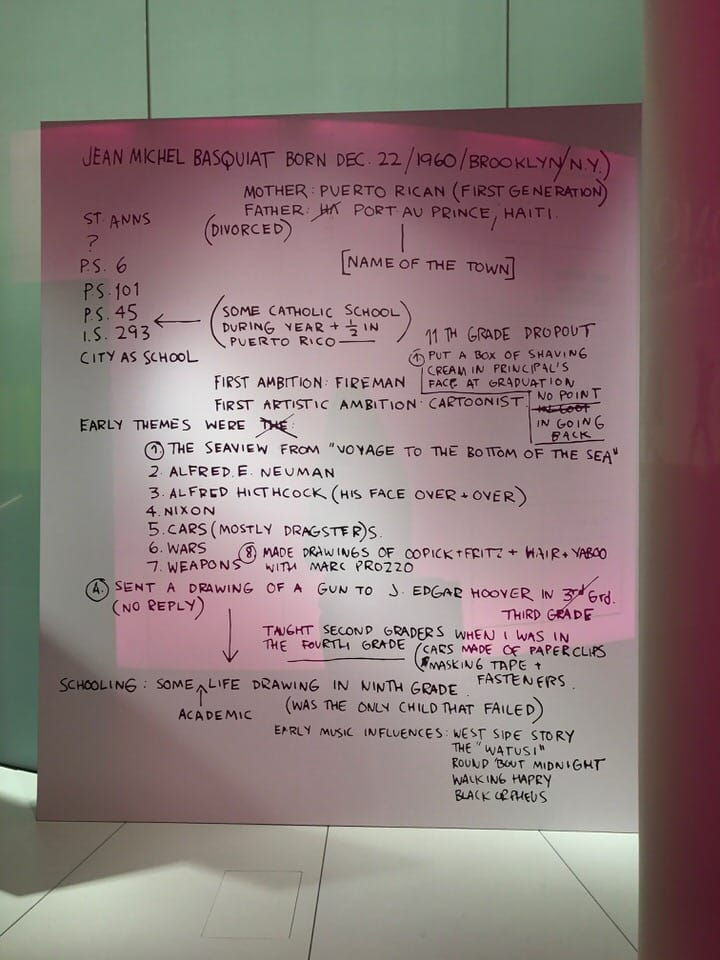 JEAN MICHEL BASQUIAT BORN DEC. 22/1960/BROOKLYN/N.Y.)
MOTHER: PUERTO RICAN (FIRST GENERATION)
FATHER: HA PORT AU PRINCE, HAITI.
(DIVORCED)
[NAME OF THE TOWN]
ST. ANNS
?
P.S. 6
P.S. 101
P.S. 45
I.S. 293
CITY AS SCHOOL
(SOME CATHOLIC SCHOOL
DURING YEAR + ½ IN
PUERTO RICO)
11 TH GRADE DROPOUT
① PUT A BOX OF SHAVING
CREAM IN PRINCIPAL'S
FACE AT GRADUATION
NO POINT
IN GOING
BACK
FIRST AMBITION: FIREMAN
FIRST ARTISTIC AMBITION: CARTOONIST.
EARLY THEMES WERE THE:
①. THE SEAVIEW FROM "VOYAGE TO THE BOTTOM OF THE SEA"
2. ALFRED. E. NEUMAN
3. ALFRED HICTHCOCK (HIS FACE OVER + OVER)
4. NIXON
5. CARS (MOSTLY DRAGSTER)S.
6. WARS
7. WEAPONS
⑧ MADE DRAWINGS OF COPICK+FRITZ + HAIR + YABOO
WITH MARC PROZZO
④. SENT A DRAWING OF A GUN TO J. EDGAR HOOVER IN 3rd Grd.
THIRD GRADE
(NO REPLY)
TAUGHT SECOND GRADERS WHEN I WAS IN
THE FOURTH GRADE (CARS MADE OF PAPERCLIPS
MASKING TAPE +
FASTENERS.
SCHOOLING: SOME LIFE DRAWING IN NINTH GRADE.
ACADEMIC
(WAS THE ONLY CHILD THAT FAILED)
EARLY MUSIC INFLUENCES: WEST SIDE STORY
THE "WATUSI"
ROUND 'BOUT MIDNIGHT
WALKING HARRY
BLACK ORPHEUS